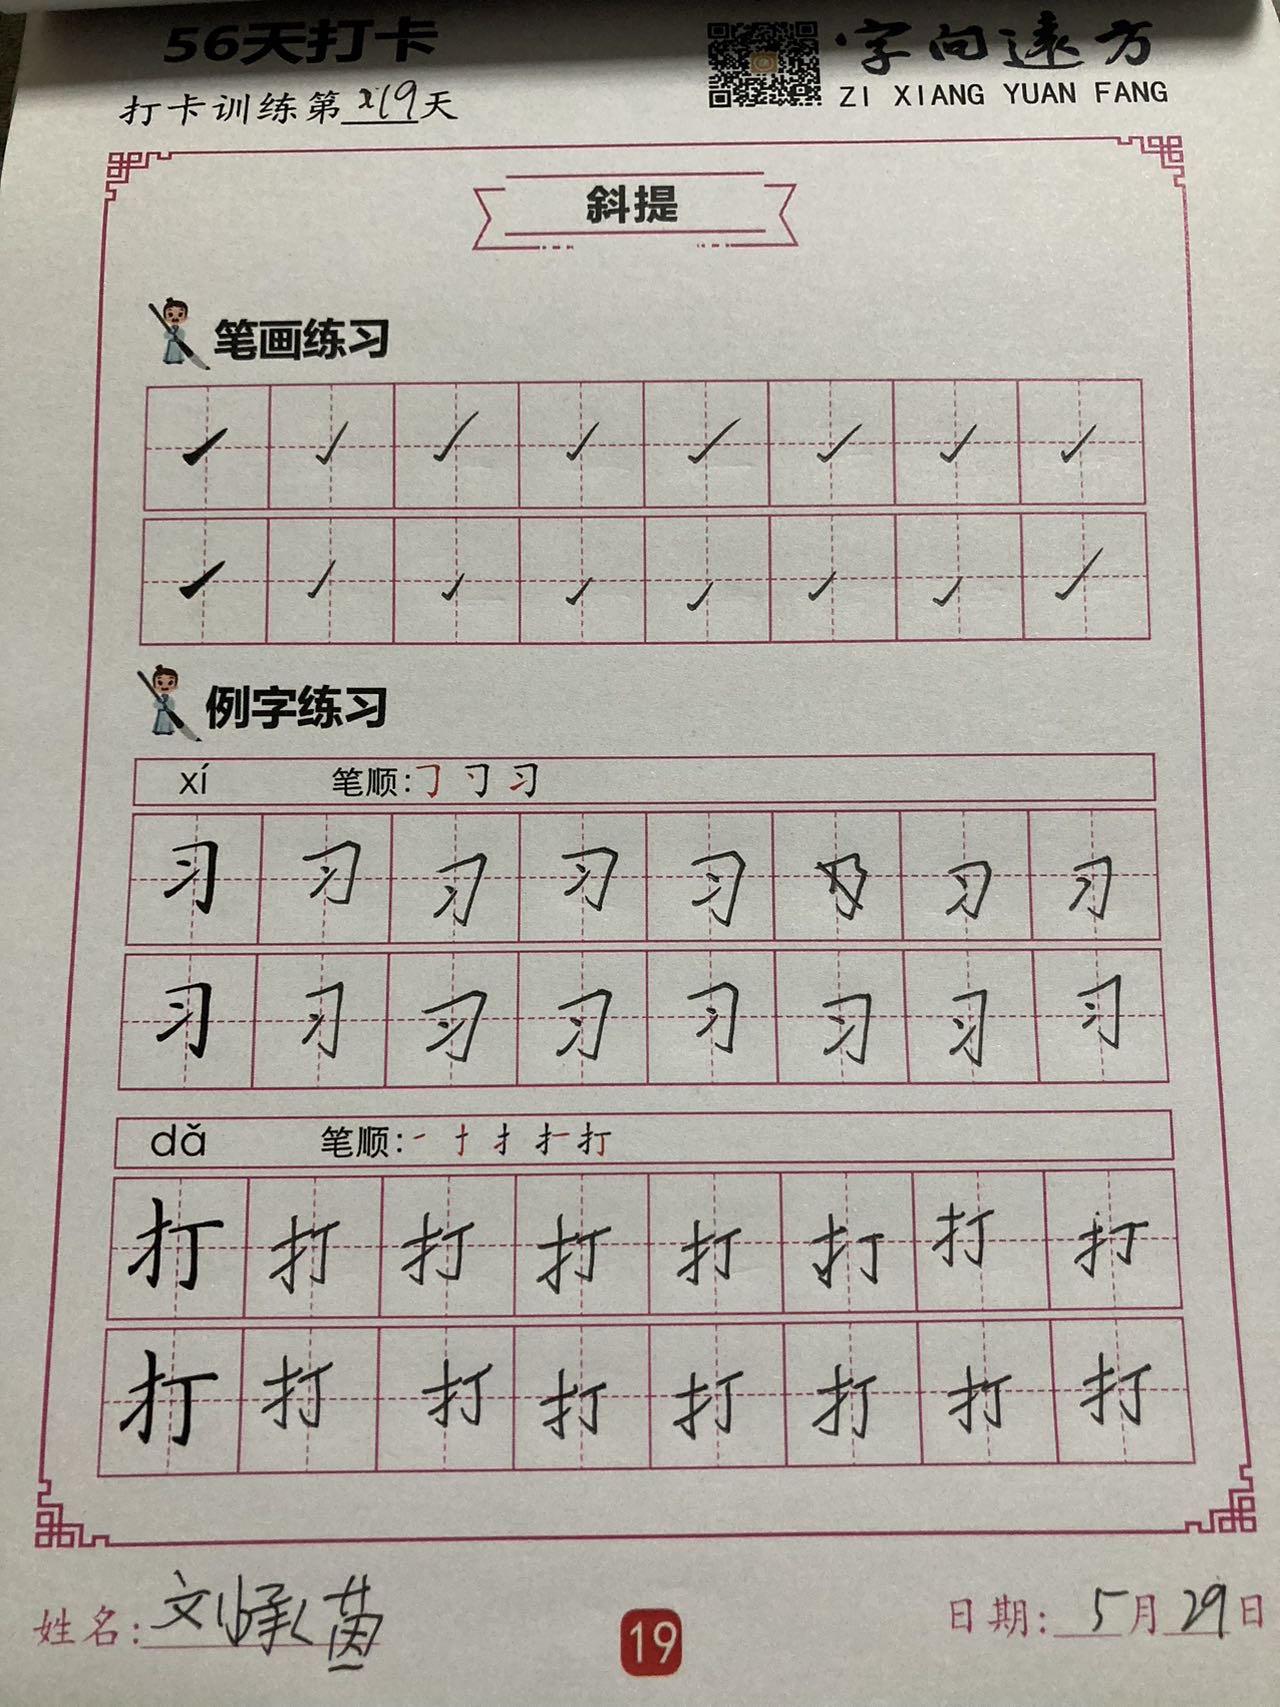 56天打卡
字向遠方
ZI XIANG YUAN FANG
打卡训练第19天
斜提
笔画练习
例字练习
xí 笔顺:
习 习 习 习 习 习 习
习 习 习 习 习 习 习 习
dǎ 笔顺: 一 十 扌 打
打 打 打 打 打 打 打 打
打 打 打 打 打 打 打 打
姓名: 刘承
19
日期: 5月29日